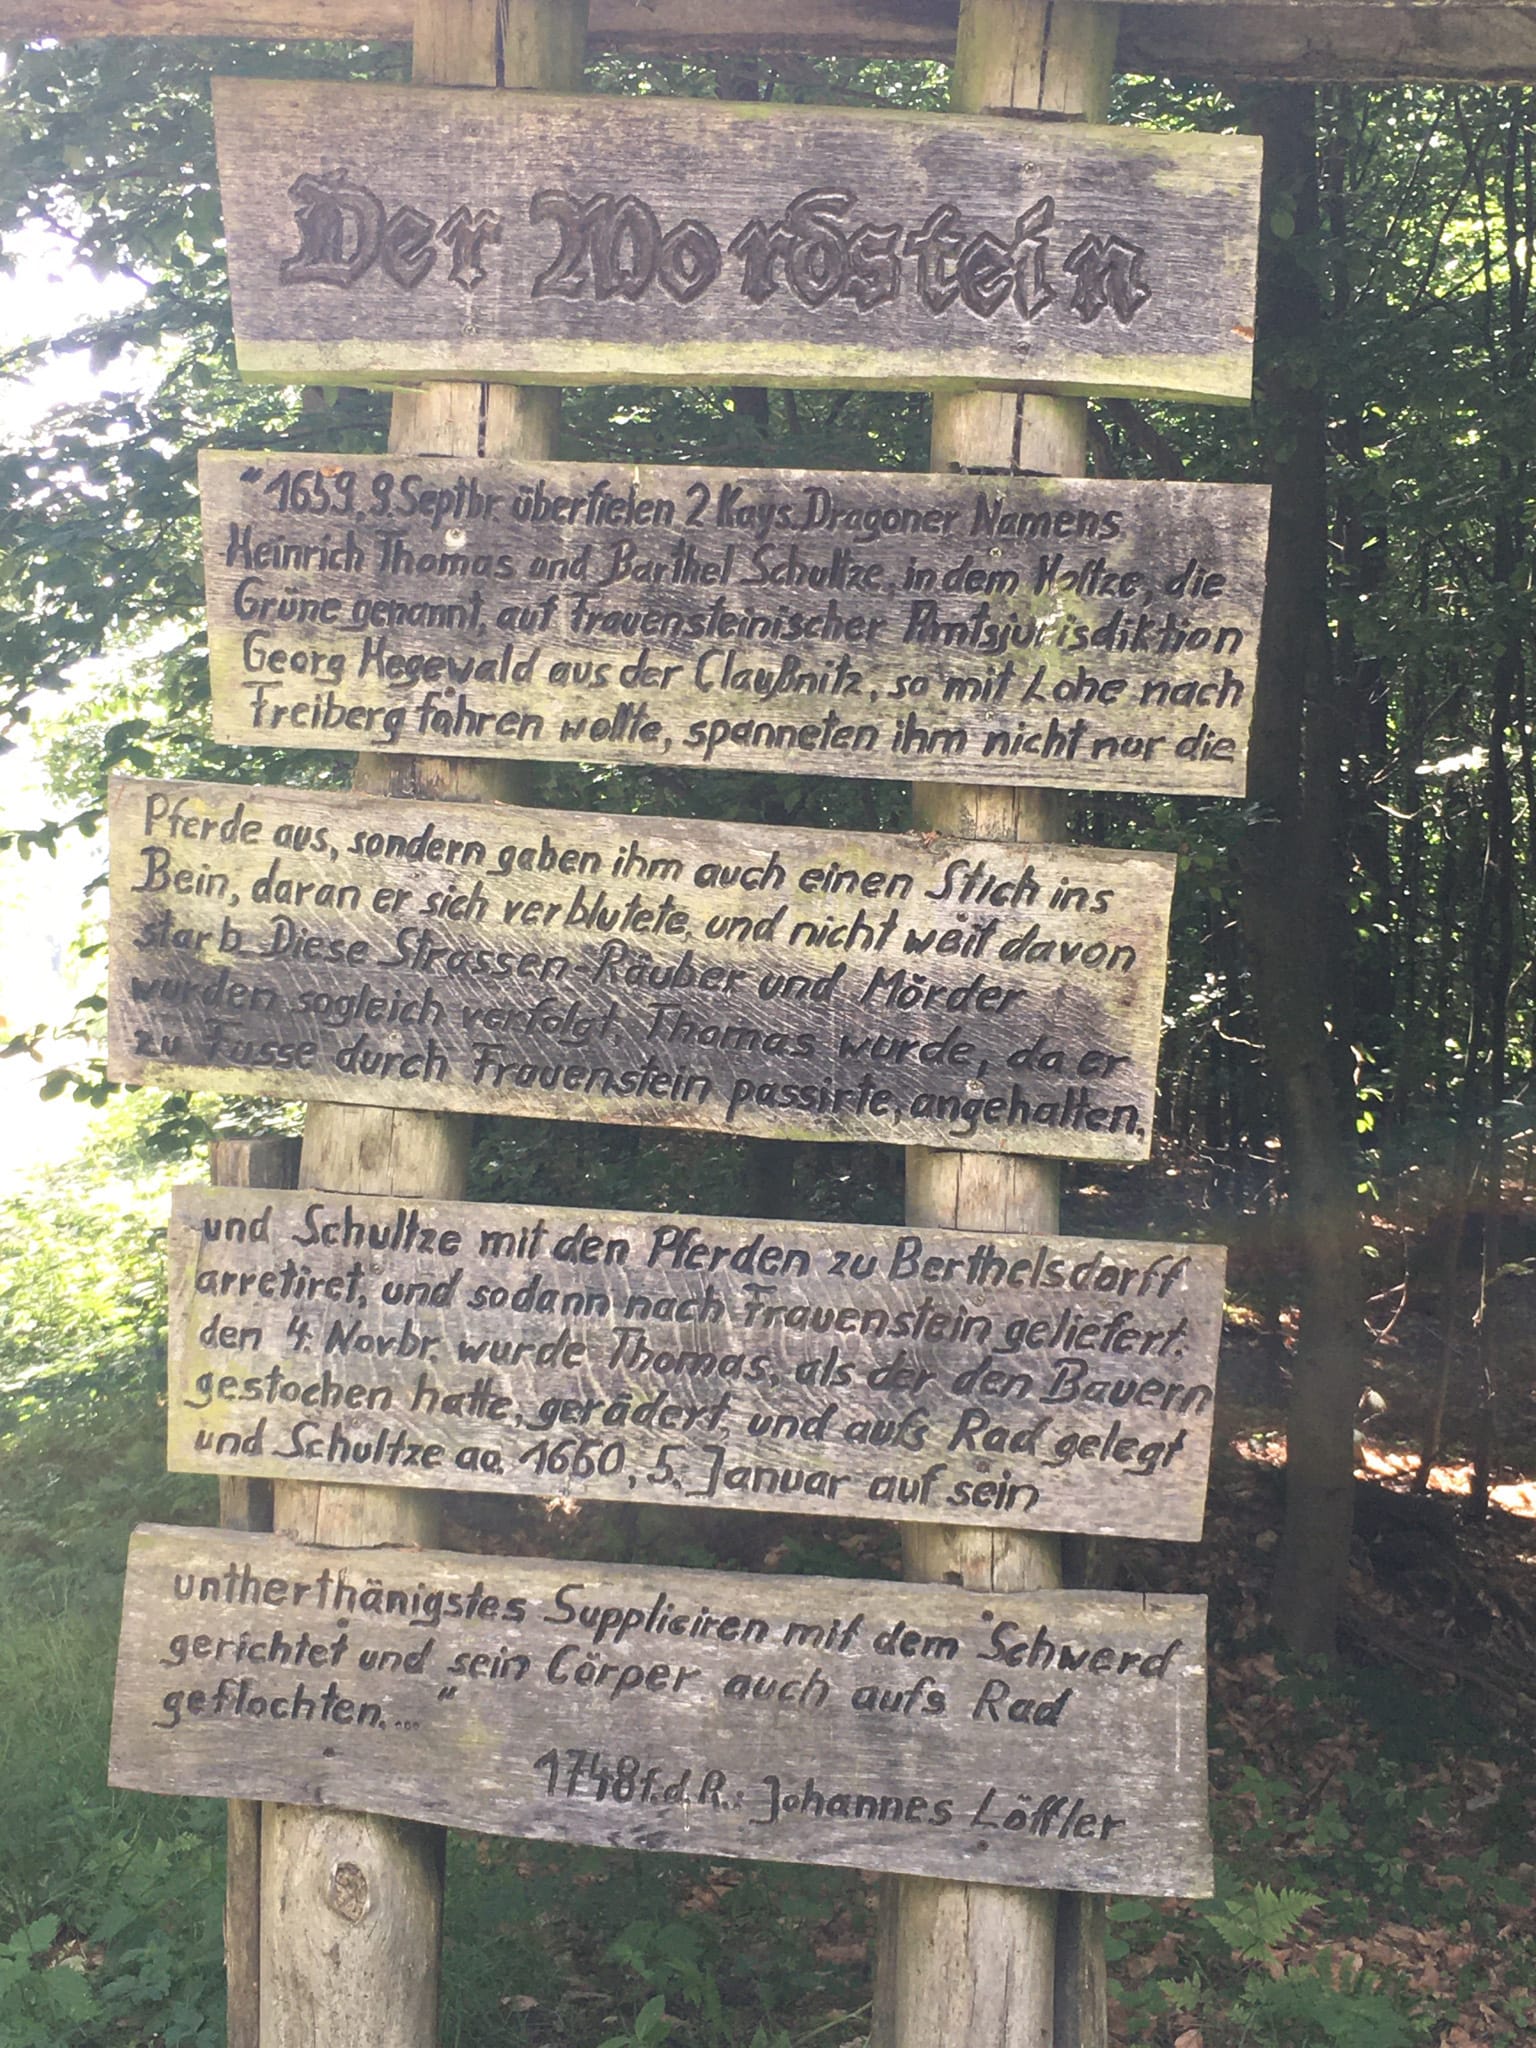 Der Mordstein
"1659, 9. Septbr. überfielen 2 Kays. Dragoner Namens
Heinrich Thomas und Barthel Schultze, in dem Holtze, die
Grüne genannt, auf Frauensteinischer Amtsjurisdiktion
Georg Hegewald aus der Claußnitz, so mit Lohe nach
Freiberg fahren wollte, spanneten ihm nicht nur die
Pferde aus, sondern gaben ihm auch einen Stich ins
Bein, daran er sich verblutete, und nicht weit davon
starb. Diese Strassen-Räuber und Mörder
wurden sogleich verfolgt, Thomas wurde, da er
zu Fusse durch Frauenstein passirte, angehalten,
und Schultze mit den Pferden zu Berthelsdorff
arretiret, und sodann nach Frauenstein geliefert.
den 4. Novbr. wurde Thomas, als der den Bauern
gestochen hatte, gerädert, und aufs Rad gelegt
und Schultze ao. 1660, 5. Januar auf sein
untherthänigstes Suppliciren mit dem Schwerd
gerichtet und sein Cörper auch aufs Rad
geflochten...."
1748 f.d.R.: Johannes Löffler